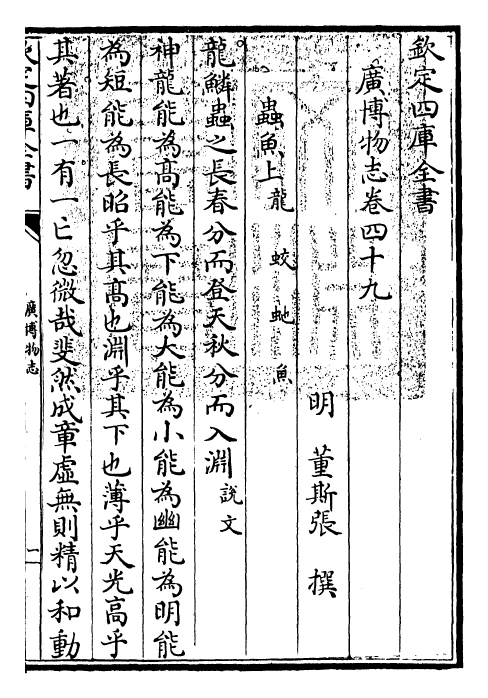 欽定四庫全書
廣博物志卷四十九
明 董斯張 撰
蟲魚上龍 蛟 虵 魚
龍鱗蟲之長春分而登天秋分而入淵說文
神龍能為高能為下能為大能為小能為幽能為明能
為短能為長昭乎其高也淵乎其下也薄乎天光高乎
其著也一有一亡忽微哉斐然成章虛無則精以和動
廣博物志
一